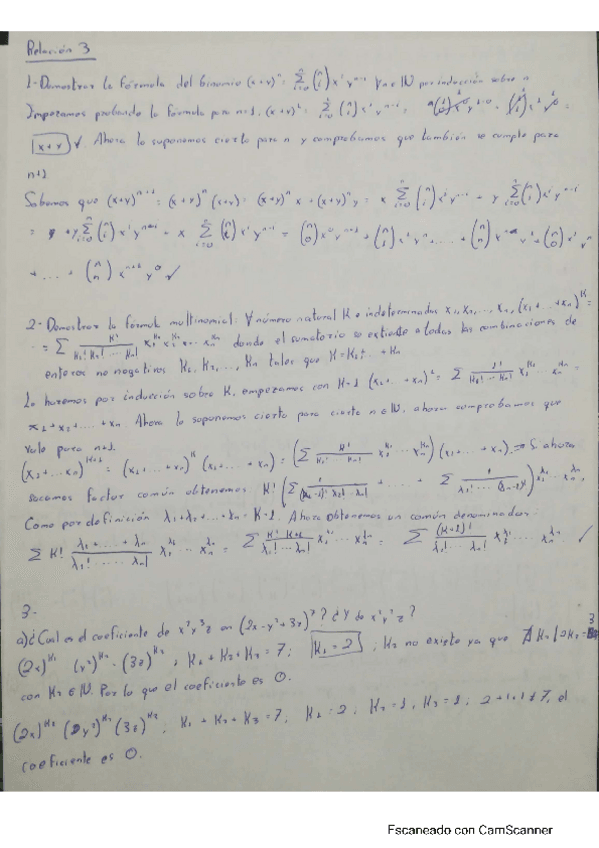 Relación 3
1- Demostrar la fórmula del binomio (x+y)^n = Σ_{i=0}^n (n i) x^i y^{n-i} ∀n∈ℕ por inducción sobre n
Empezamos probando la fórmula para n=1, (x+y)^1 =
x+y ✓. Ahora lo suponemos cierto para n y comprobamos que también se cumple para
n+1
Sabemos que (x+y)^{n+1} = (x+y)^n (x+y) = (x+y)^n x + (x+y)^n y = x Σ_{i=0}^n (n i) x^i y^{n-i} + y Σ_{i=0}^n (n i) x^i y^{n-i}
+ ... + (n n) x^{n+1} y^0 ✓
2- Demostrar la fórmula multinomial. ∀ número natural K e indeterminadas x_1, x_2, ..., x_n, (x_1+...+x_n)^K =
= Σ K!/(K_1! K_2! ... K_n!) x_1^{K_1} x_2^{K_2} ... x_n^{K_n} donde el sumatorio se extiende a todas las combinaciones de
enteros no negativos K_1, K_2, ..., K_n tales que K = K_1+...+K_n
Lo hacemos por inducción sobre K, empezamos con K=1 (x_1+...+x_n)^1 = Σ 1!/(K_1! ... K_n!) x_1^{K_1} ... x_n^{K_n} =
= x_1+x_2+...+x_n Ahora lo suponemos cierto para cierto n∈ℕ, ahora comprobamos que
vale para n+1.
(x_1+...+x_n)^{K+1} = (x_1+...+x_n)^K (x_1+...+x_n) = (Σ K!/(K_1! ... K_n!) x_1^{K_1} ... x_n^{K_n}) (x_1+...+x_n). Si ahora
sacamos factor común obtenemos
Como por definición λ_1+λ_2+...+λ_n = K+1. Ahora obtenemos un común denominador:
Σ K! (λ_1+...+λ_n)/(λ_1! ... λ_n!) x_1^{λ_1} ... x_n^{λ_n} = Σ K! K+1/(λ_1! ... λ_n!) x_1^{λ_1} ... x_n^{λ_n} = Σ (K+1)!/(λ_1! ... λ_n!) x_1^{λ_1} ... x_n^{λ_n} ✓
3-
a) ¿Cual es el coeficiente de x^2 y^3 z en (2x-y^2+3z)^7? ¿Y de x^2 y^2 z?
(2x)^{K_1} (y^2)^{K_2} (3z)^{K_3}, K_1+K_2+K_3 = 7; K_1 = 2; K_2 no existe ya que ∄ K_2 | 2K_2 = 3
con K_2 ∈ ℕ. Por lo que el coeficiente es 0.
(2x)^{K_1} (y^2)^{K_2} (3z)^{K_3}, K_1+K_2+K_3 = 7; K_1 = 2, K_2 = 1, K_3 = 1; 2+1+1 ≠ 7, el
coeficiente es 0.
Escaneado con CamScanner